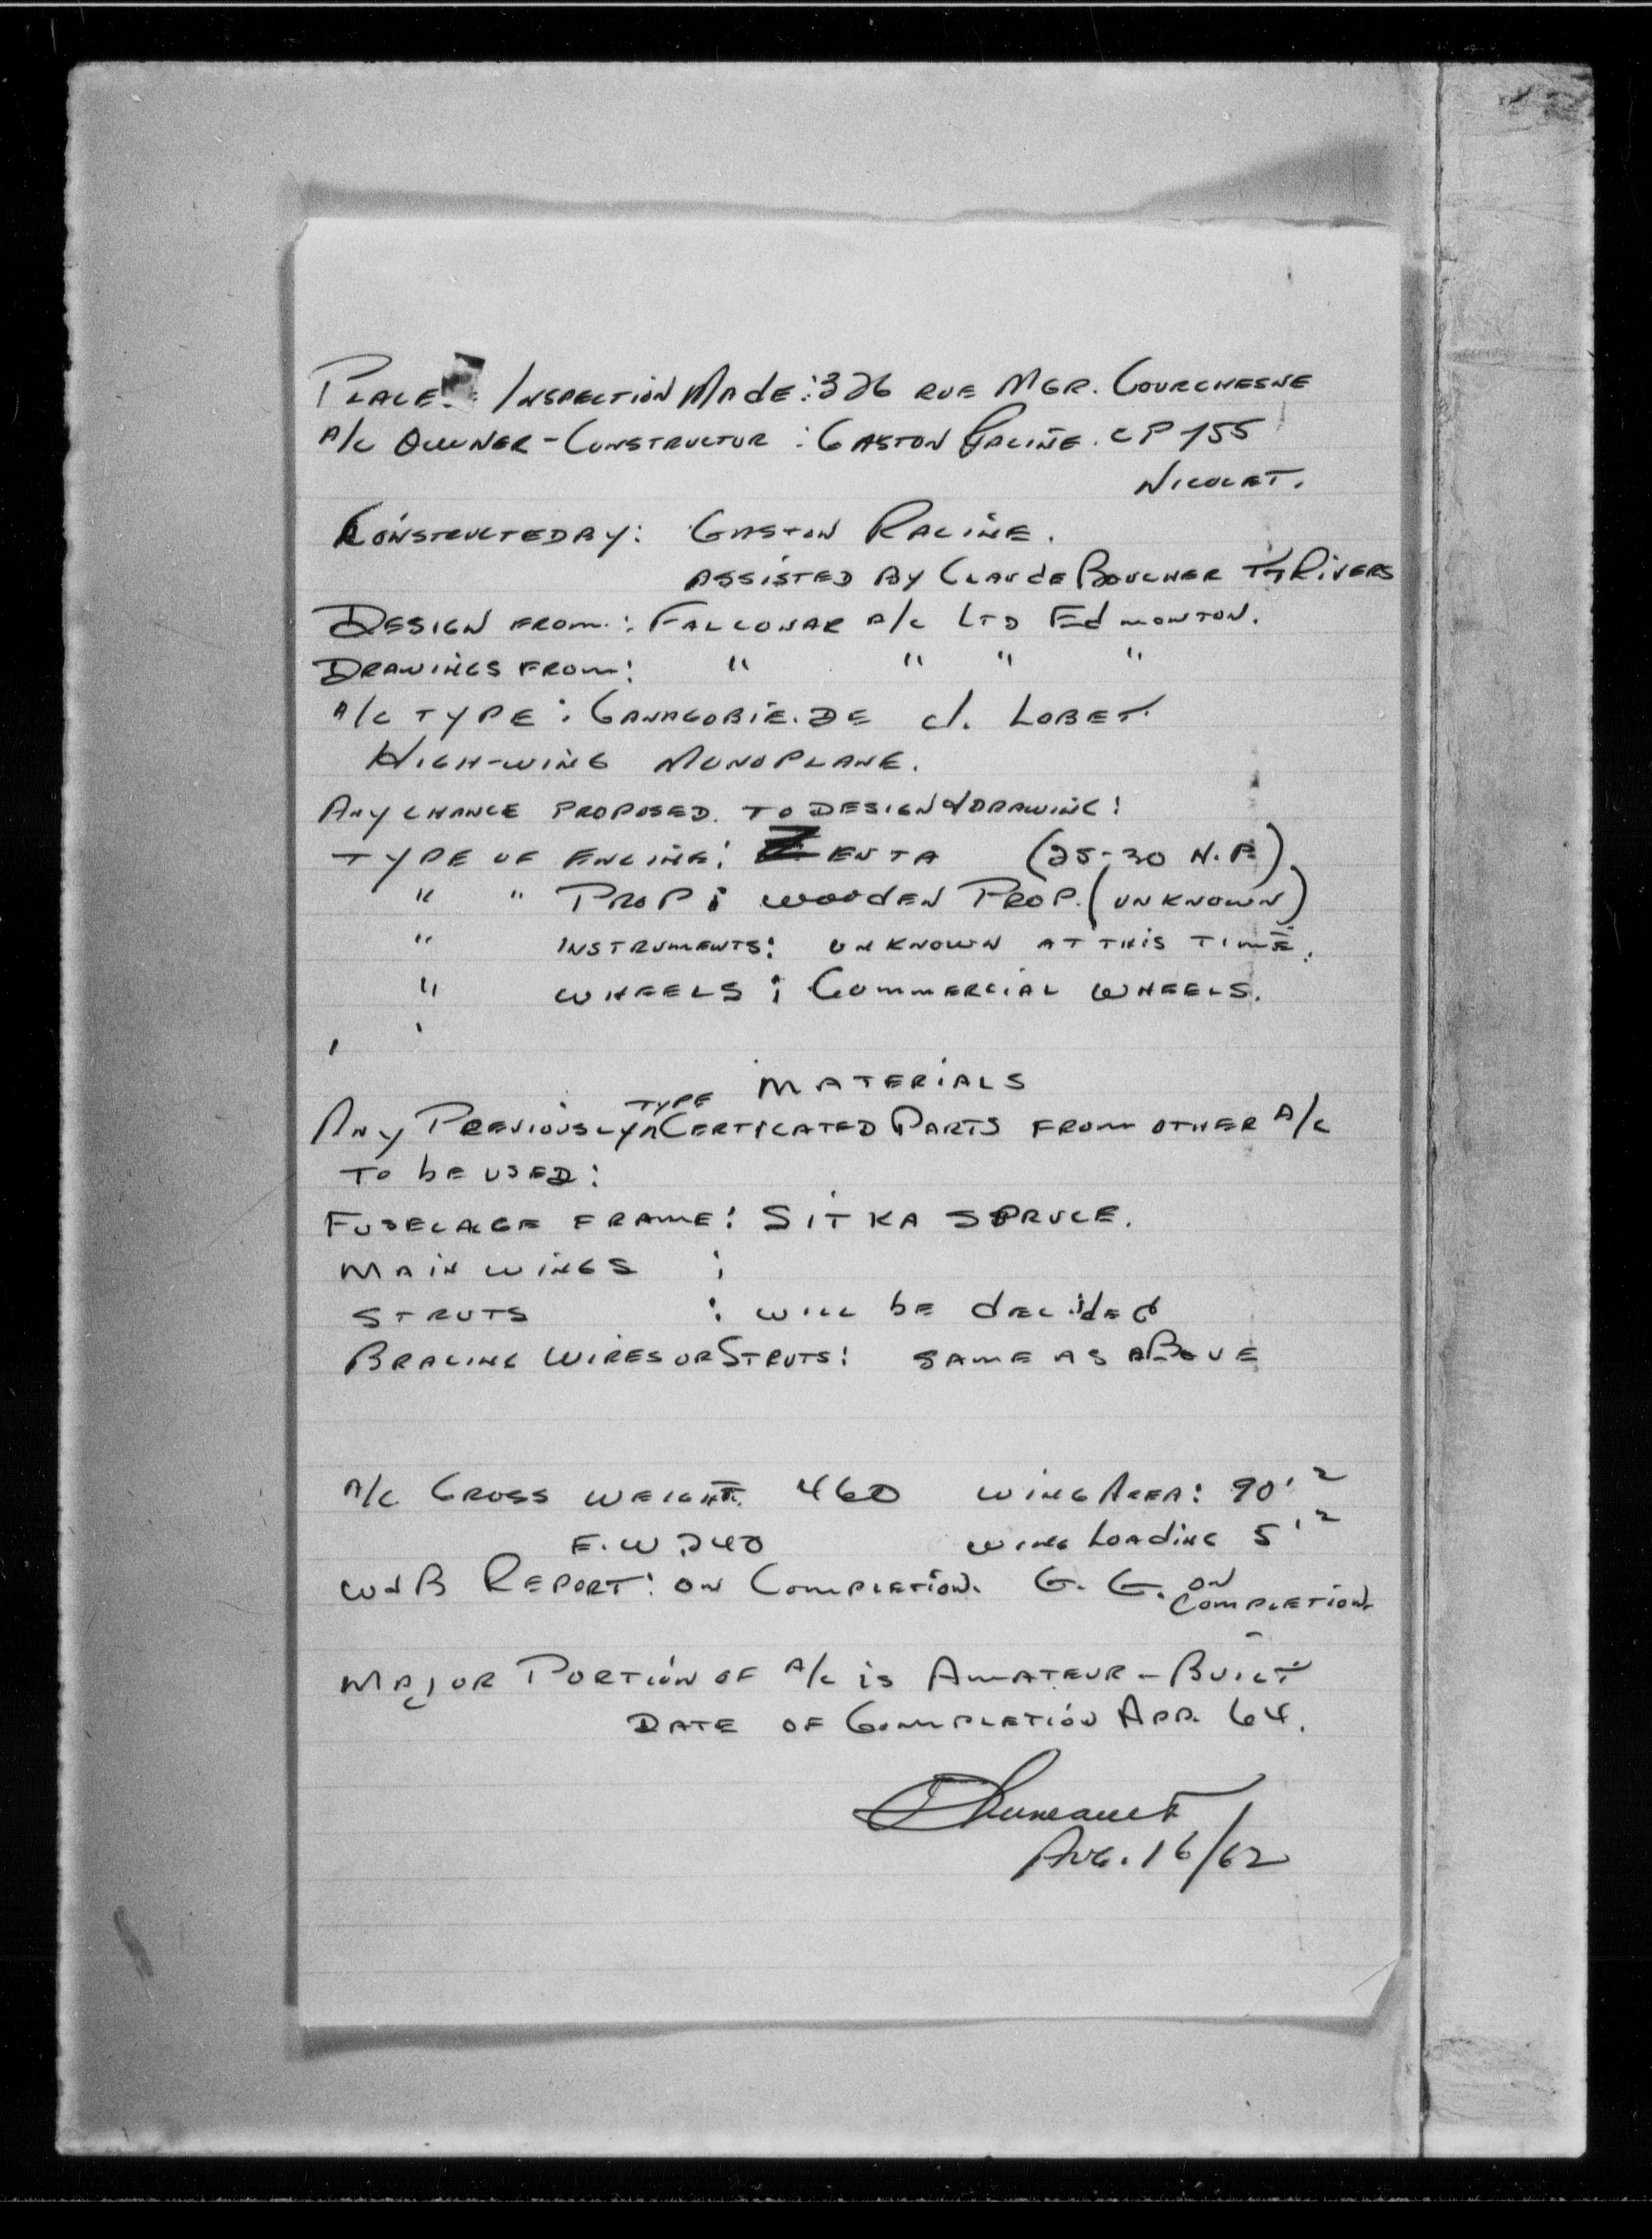 PLACE : INSPECTION MADE : 326 RUE MGR. COURCHESNE
A/C OWNER - CONSTRUCTOR : GASTON RACINE. CP 155
NICOLET.
CONSTRUCTED BY : GASTON RACINE.
ASSISTED BY CLAUDE BOUCHER T/RIVERS
DESIGN FROM : FALCONAR A/C LTD EDMONTON.
DRAWINGS FROM : " " " "
A/C TYPE : GANAGOBIE. DE J. LOBET.
HIGH-WING MONOPLANE.
ANY CHANGE PROPOSED. TO DESIGN & DRAWING :
TYPE OF ENGINE : ZENTA (25-30 H.P.)
" " PROP : WOODEN PROP. (UNKNOWN)
" INSTRUMENTS : UNKNOWN AT THIS TIME.
" WHEELS : COMMERCIAL WHEELS.
MATERIALS
ANY PREVIOUSLY TYPE CERTICATED PARTS FROM OTHER A/C
TO BE USED :
FUSELAGE FRAME : SITKA SPRUCE.
MAIN WINGS :
STRUTS : WILL BE DECIDED
BRACING WIRES OR STRUTS : SAME AS ABOVE
A/C GROSS WEIGHT. 460 WING AREA : 90'²
E.W. 240 WING LOADING 5'²
W & B REPORT : ON COMPLETION. G. G. ON COMPLETION.
MAJOR PORTION OF A/C IS AMATEUR - BUILT
DATE OF COMPLETION APR. 64.
AUG. 16/62